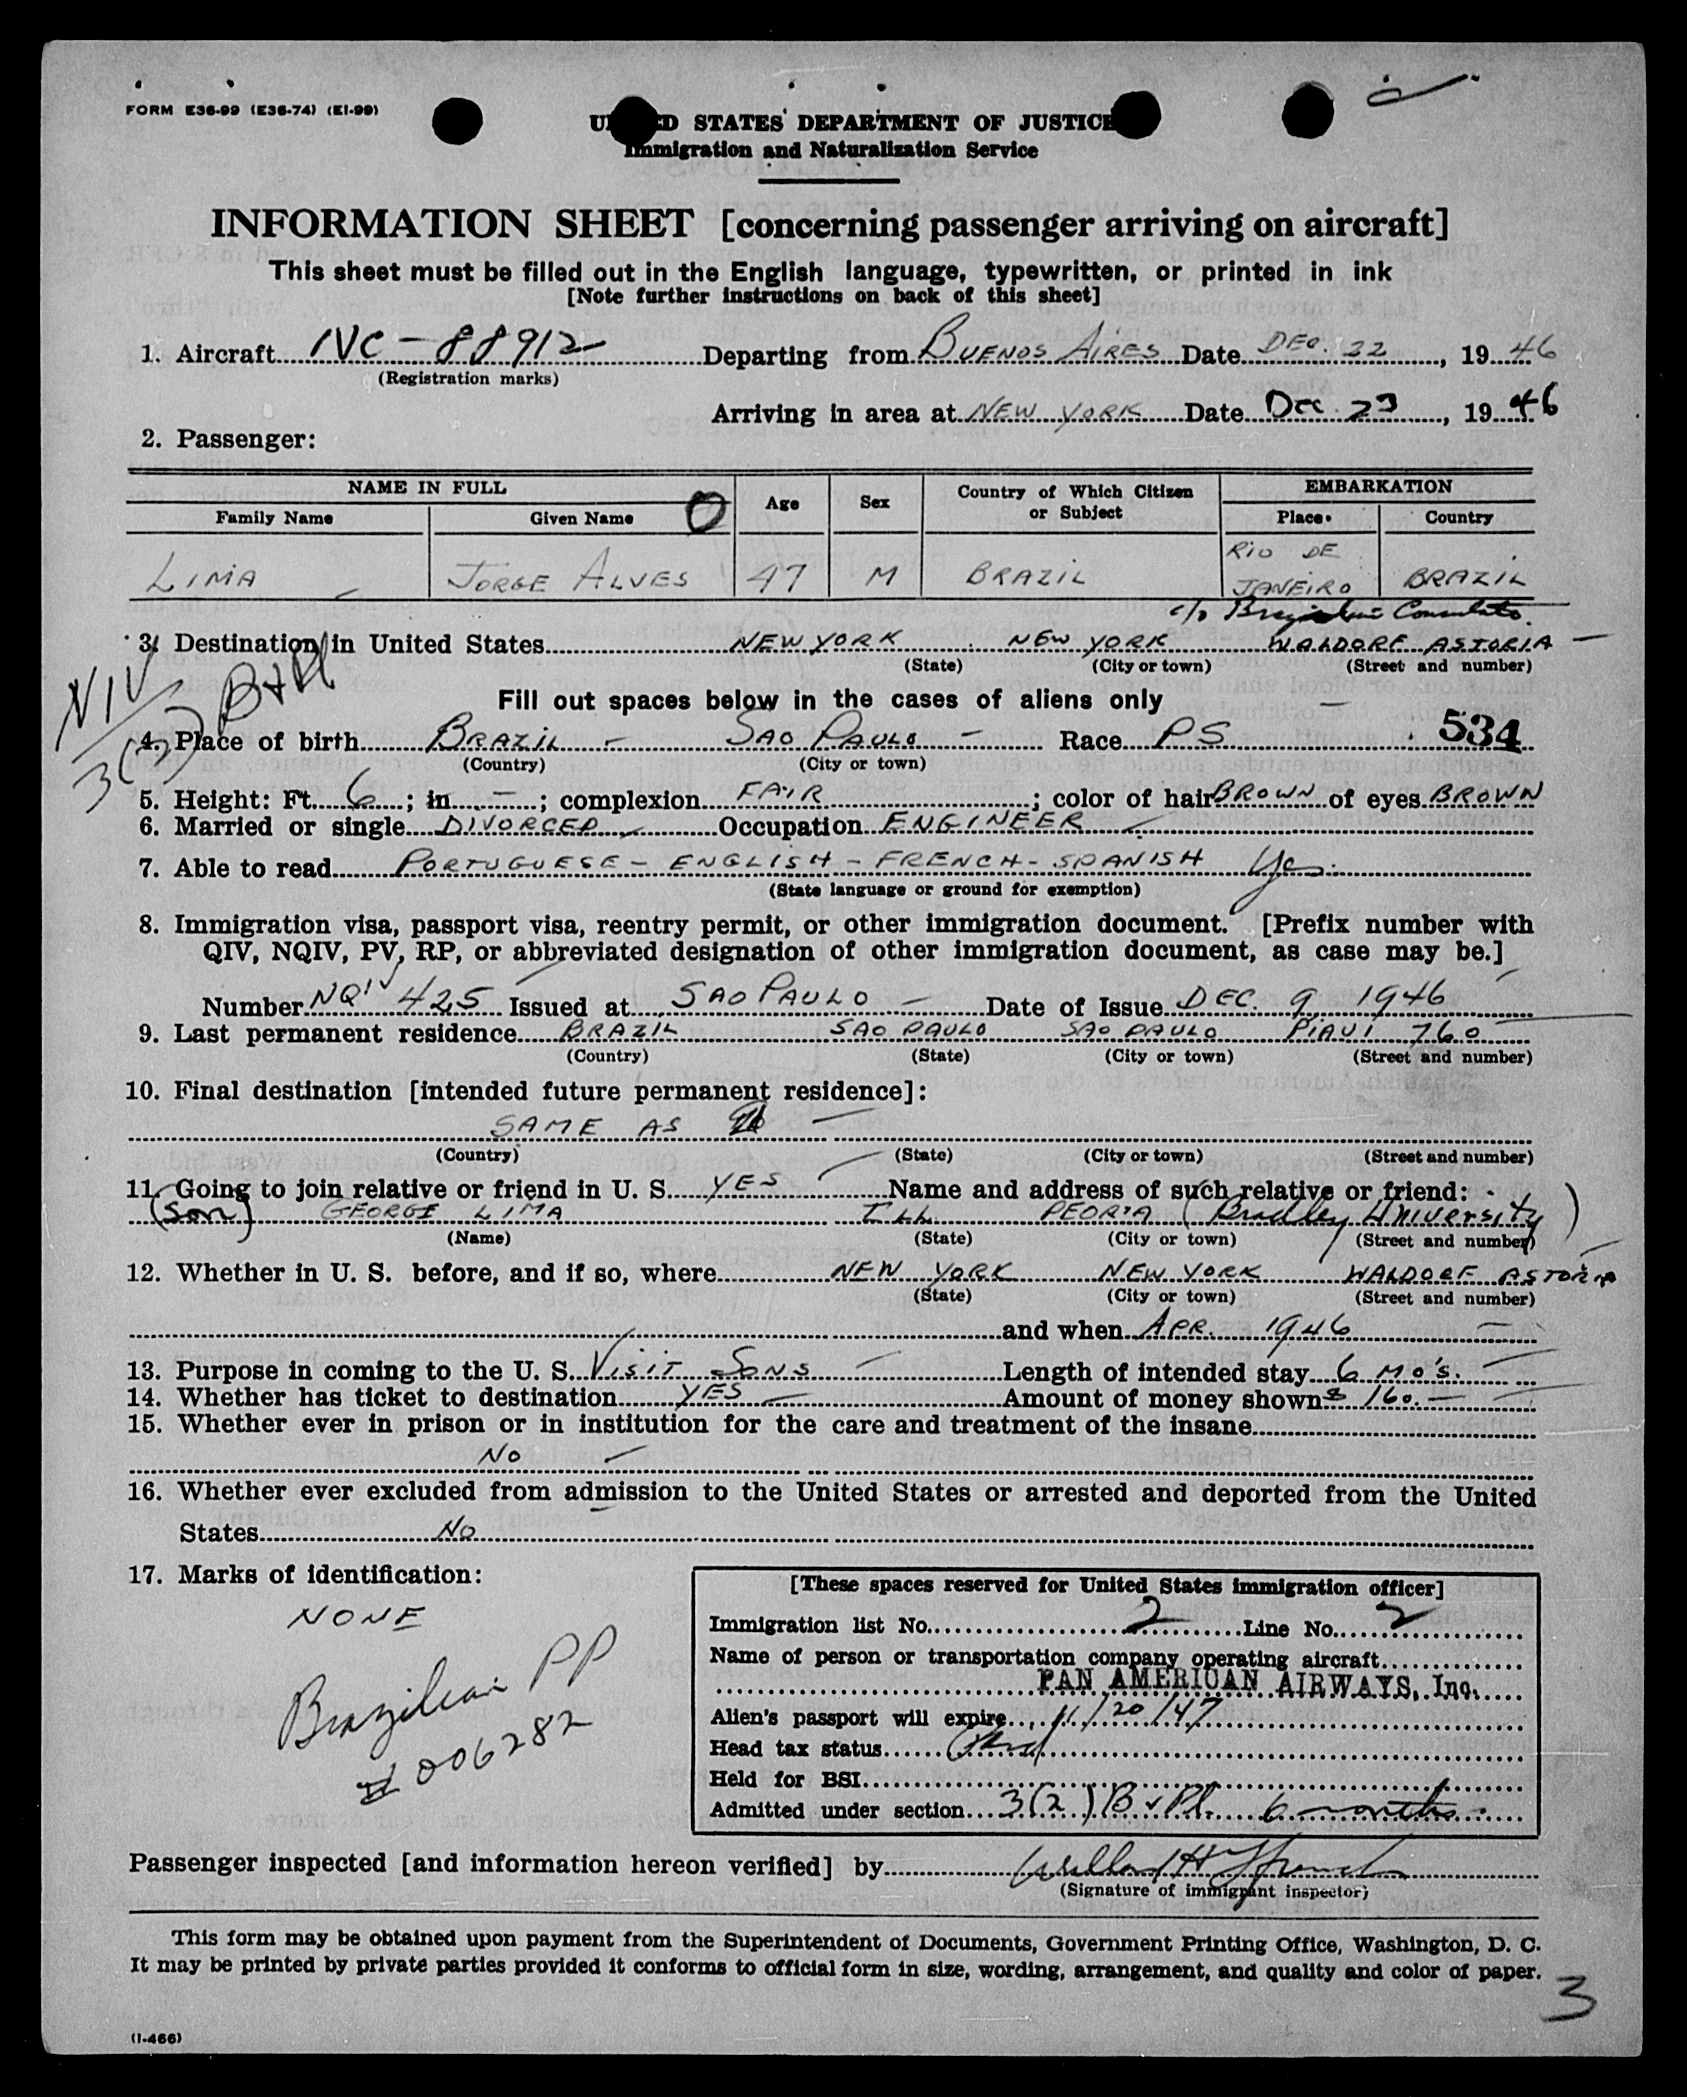 FORM E36-99 (E36-74) (EI-99)
UNITED STATES DEPARTMENT OF JUSTICE
Immigration and Naturalization Service
INFORMATION SHEET [concerning passenger arriving on aircraft]
This sheet must be filled out in the English language, typewritten, or printed in ink
[Note further instructions on back of this sheet]
1. Aircraft NC-88912 Departing from BUENOS AIRES Date DEC. 22, 1946
(Registration marks)
Arriving in area at NEW YORK Date Dec 23, 1946
2. Passenger:
NAME IN FULL Age Sex Country of Which Citizen or Subject EMBARKATION
Family Name Given Name Place Country
O
LIMA JORGE ALVES 47 M BRAZIL RIO DE JANEIRO BRAZIL
c/o Brazilian Consulate.
3. Destination in United States NEW YORK NEW YORK WALDORF ASTORIA
(State) (City or town) (Street and number)
NIV
3(2) B+Pl
Fill out spaces below in the cases of aliens only
4. Place of birth BRAZIL - SAO PAULO - Race PS 534
(Country) (City or town)
5. Height: Ft. 6; in. -; complexion FAIR; color of hair BROWN of eyes BROWN
6. Married or single DIVORCED Occupation ENGINEER
7. Able to read PORTUGUESE - ENGLISH - FRENCH - SPANISH Yes.
(State language or ground for exemption)
8. Immigration visa, passport visa, reentry permit, or other immigration document. [Prefix number with
QIV, NQIV, PV, RP, or abbreviated designation of other immigration document, as case may be.]
Number NQIV 425 Issued at SAO PAULO Date of Issue DEC. 9 1946
9. Last permanent residence BRAZIL SAO PAULO SAO PAULO PIAUI 760
(Country) (State) (City or town) (Street and number)
10. Final destination [intended future permanent residence]:
SAME AS
(Country) (State) (City or town) (Street and number)
11. Going to join relative or friend in U. S. YES Name and address of such relative or friend:
(Son) GEORGE LIMA ILL PEORIA (Bradley University)
(Name) (State) (City or town) (Street and number)
12. Whether in U. S. before, and if so, where NEW YORK NEW YORK WALDORF ASTORIA
(State) (City or town) (Street and number)
and when APR. 1946
13. Purpose in coming to the U. S. VISIT SONS Length of intended stay 6 MO'S.
14. Whether has ticket to destination YES Amount of money shown $ 160.-
15. Whether ever in prison or in institution for the care and treatment of the insane
NO
16. Whether ever excluded from admission to the United States or arrested and deported from the United
States NO
17. Marks of identification:
NONE
Brazilian PP
# 006282
[These spaces reserved for United States immigration officer]
Immigration list No. 2 Line No. 2
Name of person or transportation company operating aircraft
PAN AMERICAN AIRWAYS, Inc.
Alien's passport will expire 11/20/47
Head tax status
Held for BSI
Admitted under section 3(2) B & Pl. 6 months.
Passenger inspected [and information hereon verified] by
(Signature of immigrant inspector)
This form may be obtained upon payment from the Superintendent of Documents, Government Printing Office, Washington, D. C.
It may be printed by private parties provided it conforms to official form in size, wording, arrangement, and quality and color of paper.
3
(I-466)